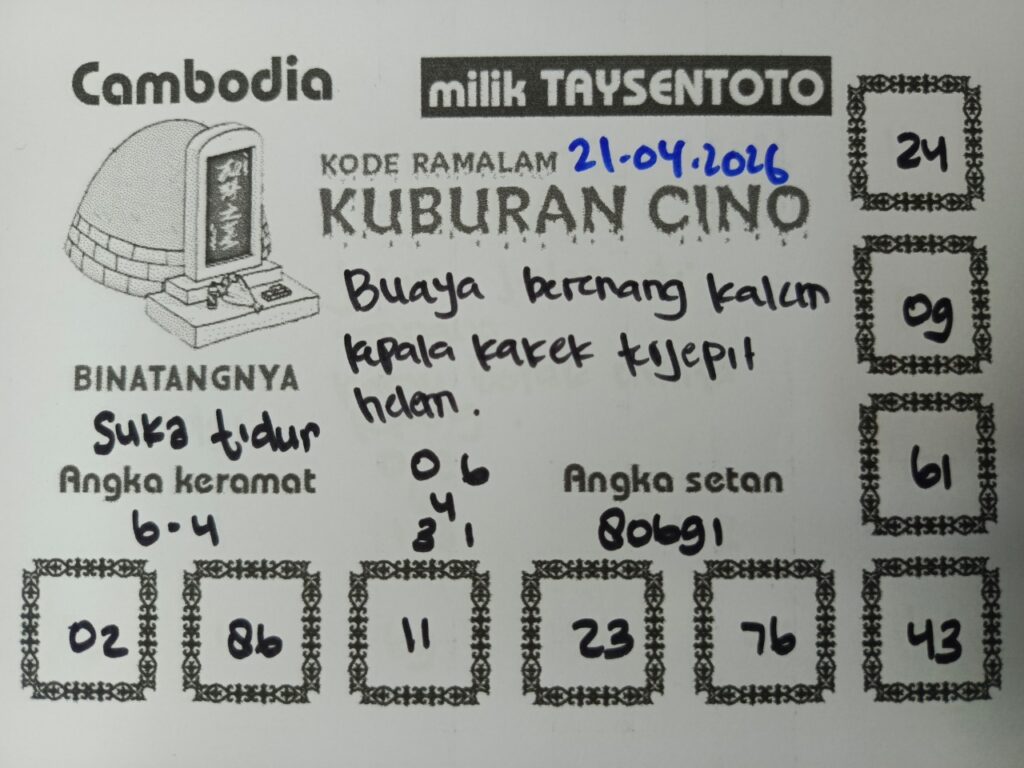 Cambodia
milik TAYSENTOTO
KODE RAMALAM 21.04.2026
KUBURAN CINO
Buaya berenang kalem
kepala kakek terjepit
helem.
BINATANGNYA
suka tidur
Angka keramat
6.4
0 6
4
3 1
Angka setan
80691
24
09
61
02
86
11
23
76
43